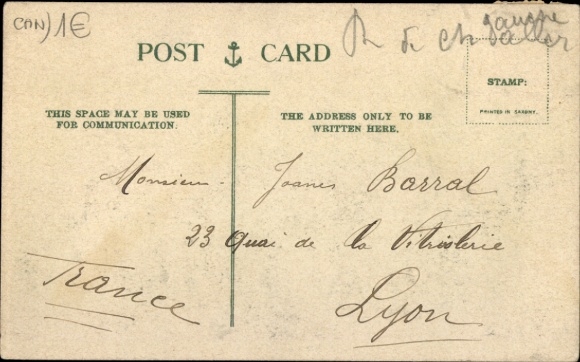 CAN) 1€
POST CARD
STAMP:
PRINTED IN SAXONY.
THIS SPACE MAY BE USED
FOR COMMUNICATION.
THE ADDRESS ONLY TO BE
WRITTEN HERE.
Monsieur Joanes Barral
23 Quai de la Vitriolerie
France
Lyon